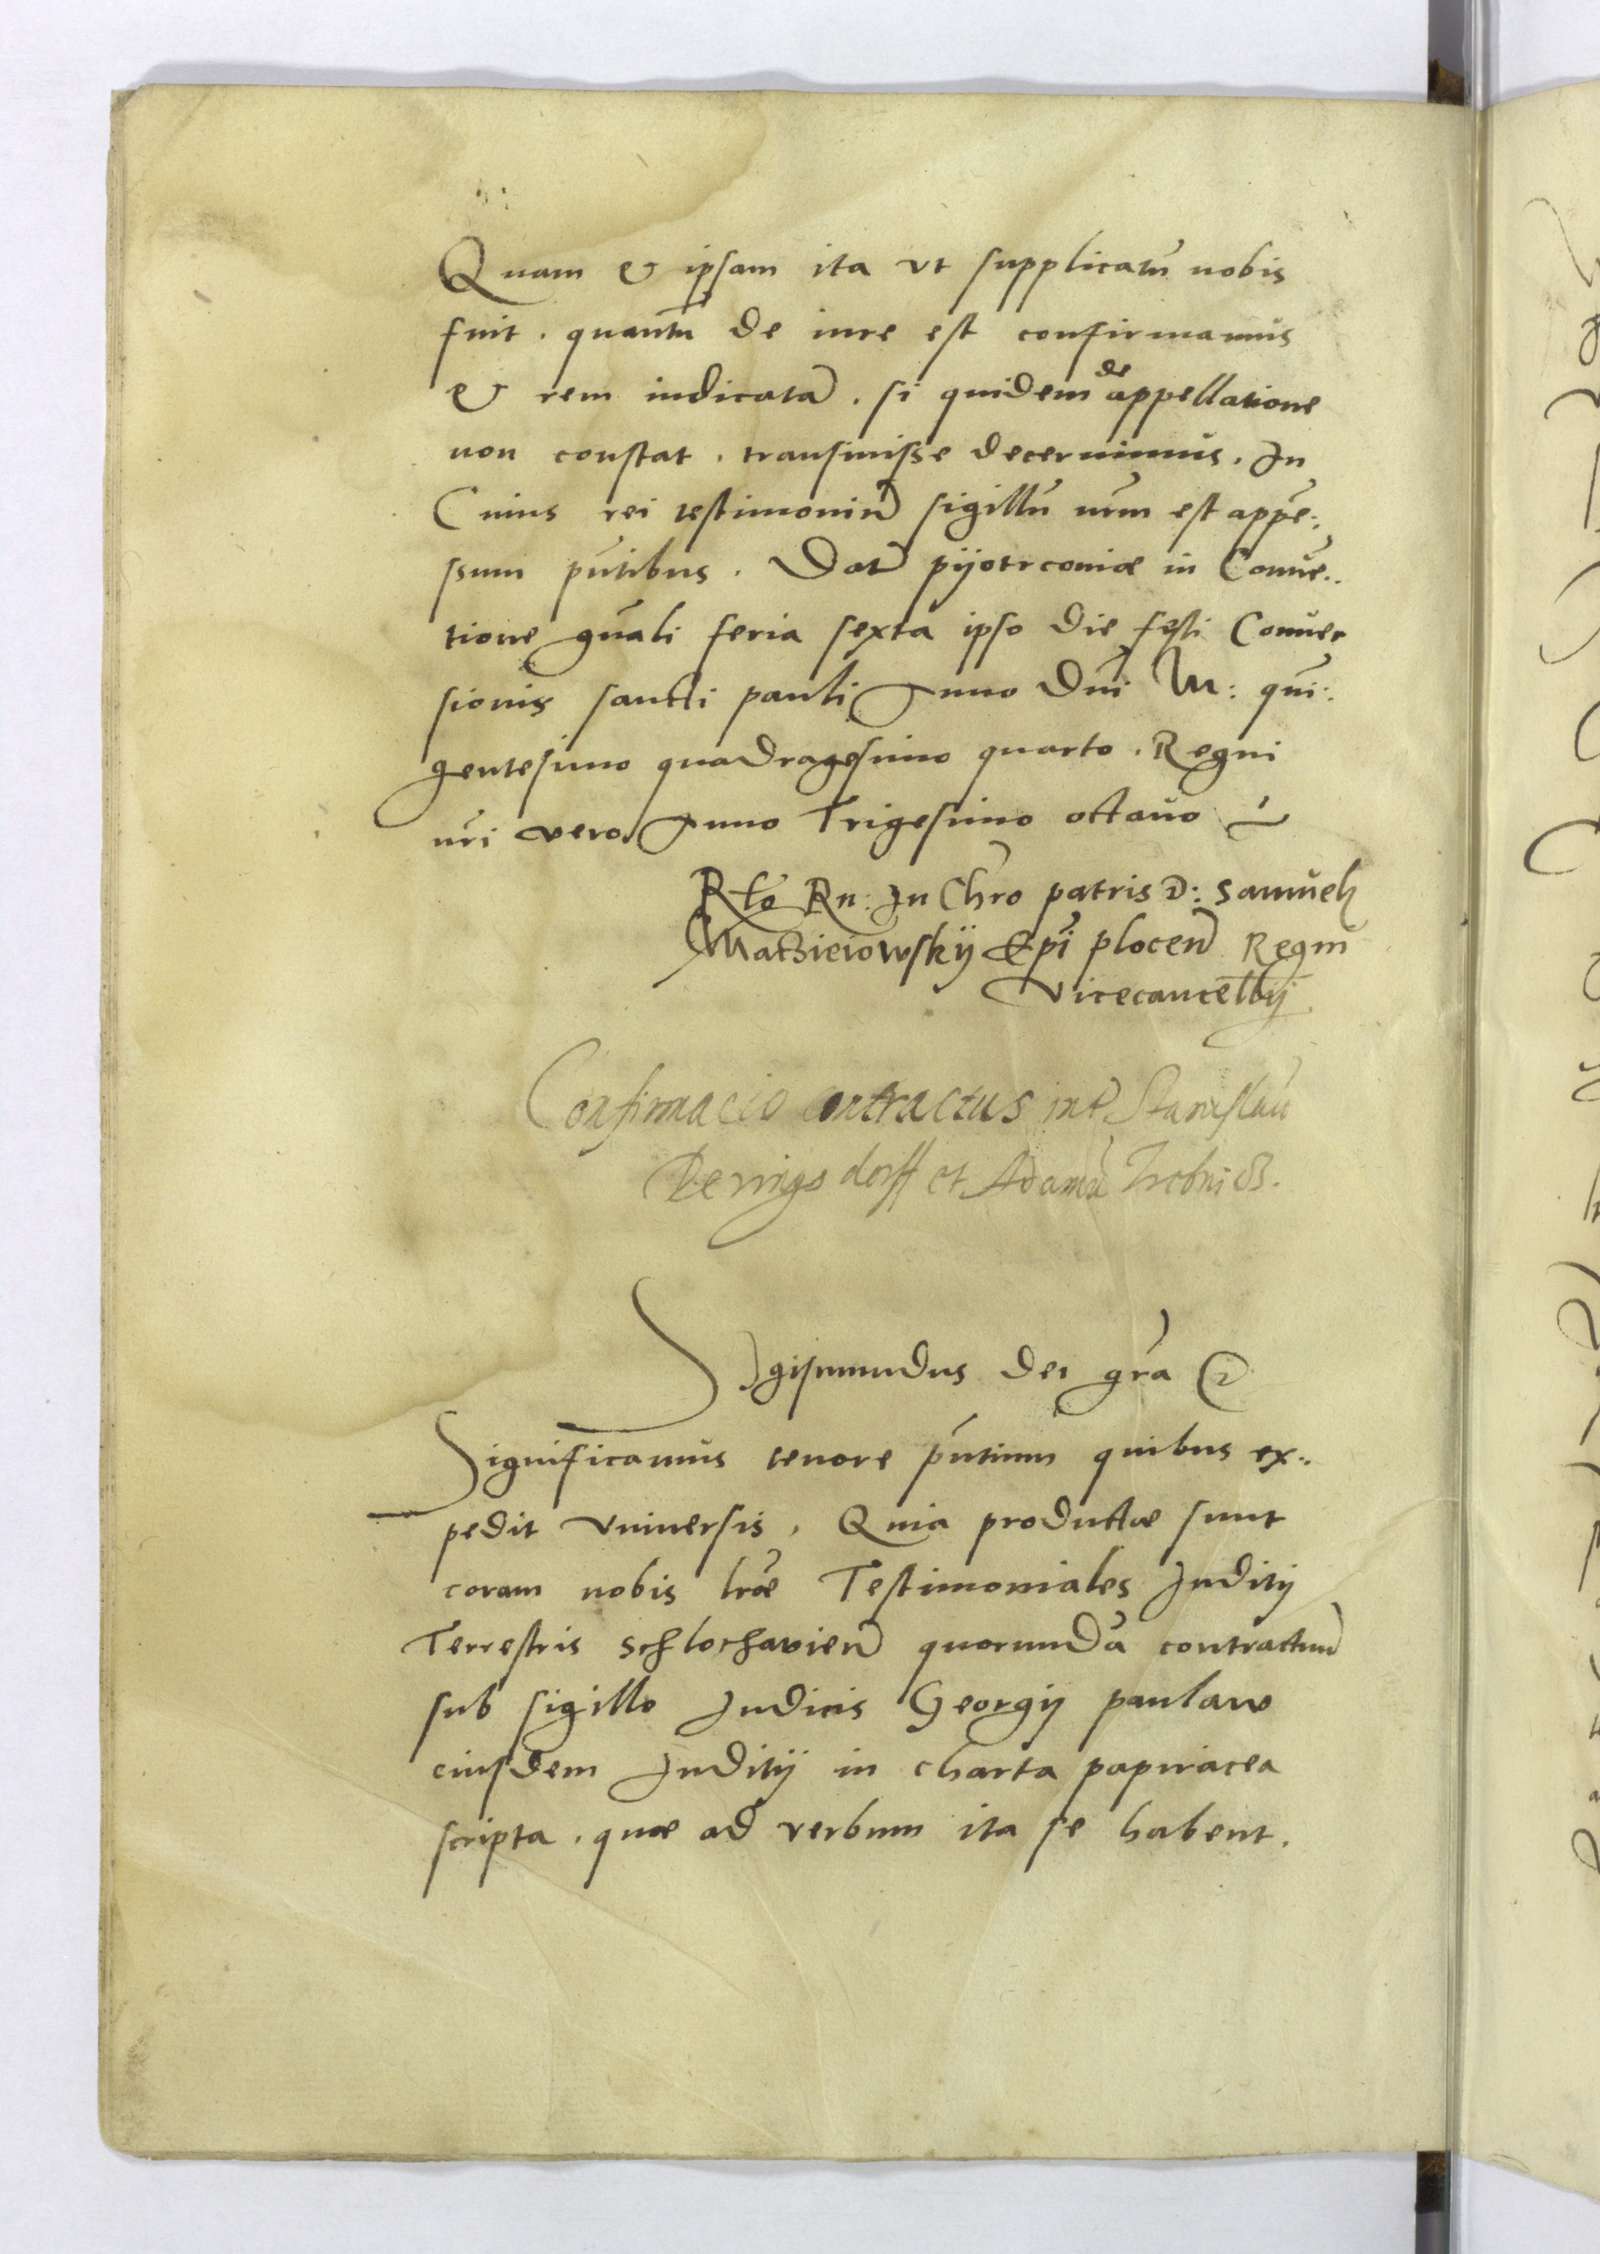 Quam & ipsam ita vt supplicatũ nobis
fuit. quantũ de iure est confirmamus
& rem iudicatã. si quidem de appellatione
non constat. transiuisse decernimus. In
Cuius rei testimoniũ sigillũ nr̃m est appẽ:
ssum pñtibus. Datũ pijotrconiæ in Conuẽ..
tione gñali feria sexta ipso die festi Conuer
sionis sancti pauli Anno Dñi M: quĩ:
gentesimo quadragesimo quarto. Regni
nr̃i vero Anno Trigesimo octauo
Rt̃o Rn: In Chr̃o patris D: Samuelis
Matzieiowskij Ep̃i plocen̄ Regni
Vicecancellarij
Confirmacio contractus inter Stanislaũ
Denigsdorff et Adamũ Trebnicz.
Sigismundus dei grã &c
Significamus tenore pñtium quibus ex..
pedit vniuersis. Quia productæ sunt
coram nobis lr̃æ Testimoniales Juditij
Terrestris Schlochauien̄ quorundã contractuum
sub sigillo Judicis Georgij paulaw
eiusdem Juditij in charta papiracea
scripta. quæ ad verbum ita se habent.